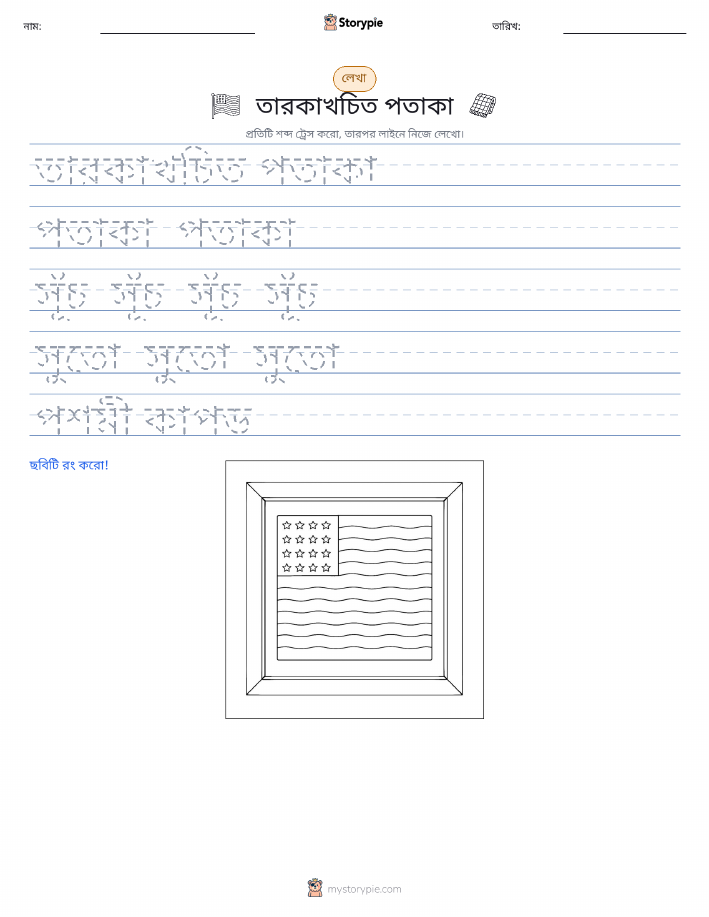 নাম:
Storypie
তারিখ:
লেখা
তারকাখচিত পতাকা
প্রতিটি শব্দ ট্রেস করো, তারপর লাইনে নিজে লেখো।
তারকাখচিত পতাকা
পতাকা পতাকা
সুঁচ সুঁচ সুঁচ সুঁচ
সুতো সুতো সুতো
পশমী কাপড়
ছবিটি রং করো!
mystorypie.com